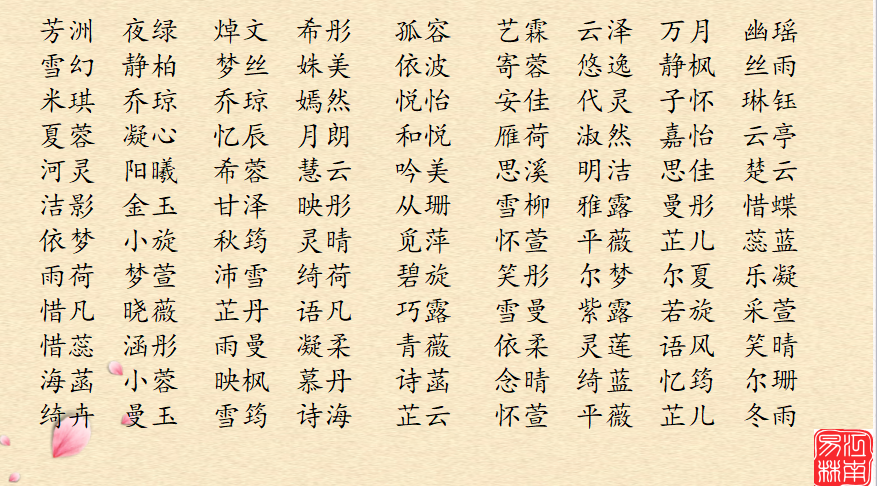 芳洲 夜绿 焯文 希彤 孤容 艺霖 云泽 万月 幽瑶
雪幻 静柏 梦丝 姝美 依波 寄蓉 悠逸 静枫 丝雨
米琪 乔琼 乔琼 嫣然 悦怡 安佳 代灵 子怀 琳钰
夏蓉 凝心 忆辰 月朗 和悦 雁荷 淑然 嘉怡 云亭
河灵 阳曦 希蓉 慧云 吟美 思溪 明洁 思佳 楚云
洁影 金玉 甘泽 映彤 从珊 雪柳 雅露 曼彤 惜蝶
依梦 小旋 秋筠 灵晴 觅萍 怀萱 平薇 芷儿 蕊蓝
雨荷 梦萱 沛雪 绮荷 碧旋 笑彤 尔梦 尔夏 乐凝
惜凡 晓薇 芷丹 语凡 巧露 雪曼 紫露 若旋 采萱
惜蕊 涵彤 雨曼 凝柔 青薇 依柔 灵莲 语风 笑晴
海菡 小蓉 映枫 慕丹 诗菡 念晴 绮蓝 忆筠 尔珊
绮卉 曼玉 雪筠 诗海 芷云 怀萱 平薇 芷儿 冬雨
江南
易林